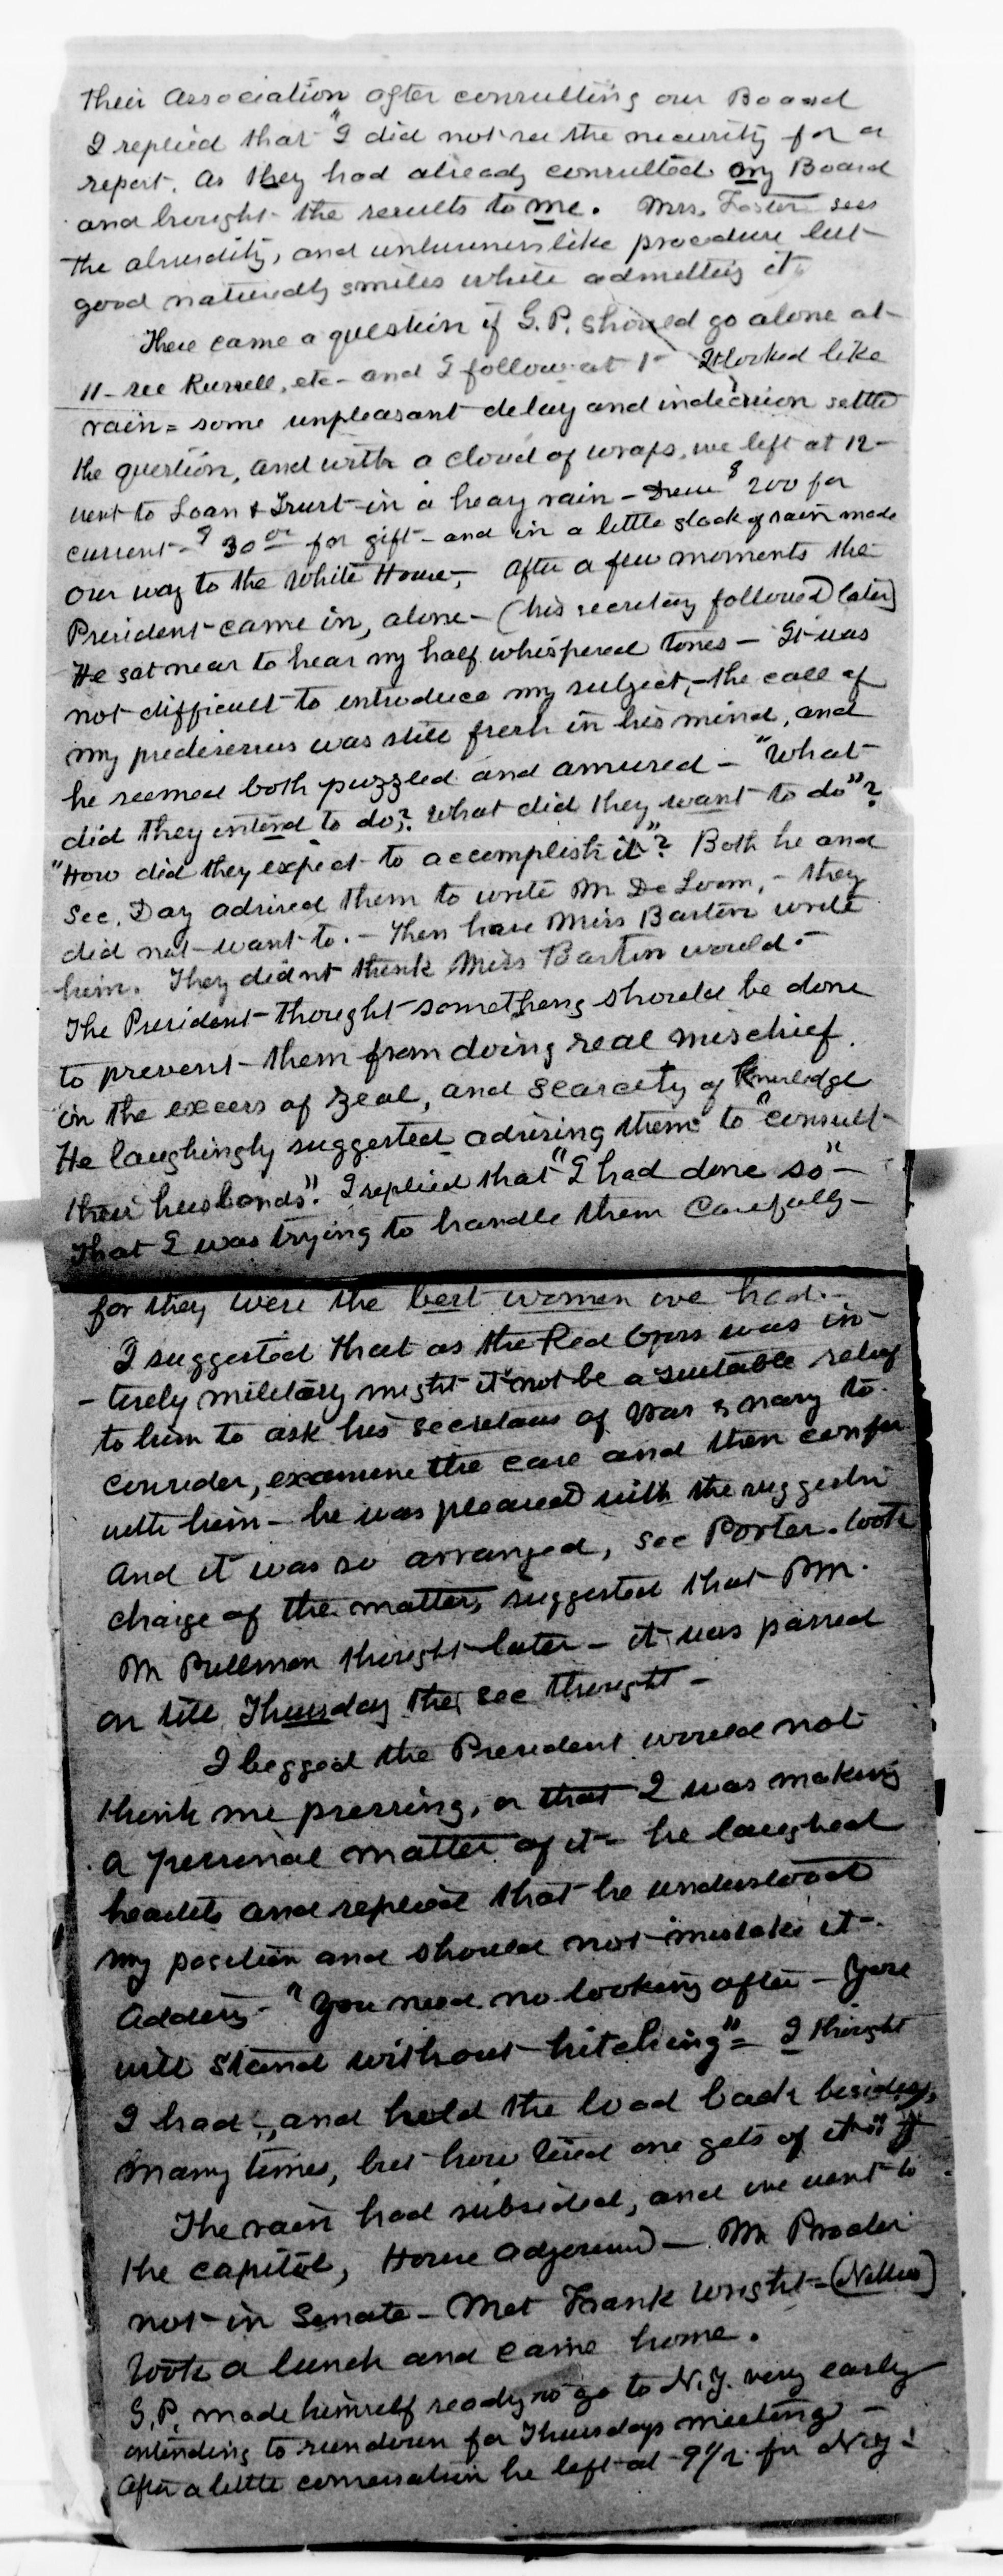 their Association after consulting our Board
I replied that "I did not see the necessity for a
report. As they had already consulted my Board
and brought the results to me. Mrs. Foster sees
the absurdity, and unbusinesslike procedure but
good naturedly smiles while admitting it.
There came a question if G.P. should go alone at
11 - see Russell, etc - and I follow at 1 - It looked like
rain = some unpleasant delay and indecision settled
the question, and with a cloud of wraps, we left at 12 -
went to Loan & Trust in a heavy rain - Drew $200 for
current - $30 00 for gift - and in a little slack of rain made
our way to the White House, - After a few moments the
President came in, alone - (his secretary followed later)
He sat near to hear my half whispered tones - It was
not difficult to introduce my subject, - the call of
my predecessors was still fresh in his mind, and
he seemed both puzzled and amused - "What
did they intend to do? What did they want to do"?
"How did they expect to accomplish it"? Both he and
Sec. Day advised them to write M De Loom, - they
did not want to. - Then have Miss Barton write
him. They didnt think Miss Barton would. -
The President thought something should be done
to prevent them from doing real mischief.
in the excess of zeal, and scarcity of knowledge
He laughingly suggested advising them to "consult
their husbands". I replied that "I had done so" -
That I was trying to handle them carefully -
for they were the best women we had. -
I suggested that as the Red Cross was in-
- tirely military might it not be a suitable relief
to him to ask his secretaries of War & navy to
consider, examine the case and then confer
with him - he was pleased with the suggestion
And it was so arranged, Sec Porter took
charge of the matter, suggested that PM.
M Pullman thought later - it was passed
on till Thursday the Sec thought -
I begged the President would not
think me pressing, or that I was making
a personal matter of it - he laughed
heartily and replied that he understood
my position and should not mistake it -
Adding - "You need no looking after - You
will stand without hitching" = I thought
I had, and held the load back besides,
many times, but how tired one gets of it
The rain had subsided, and we went to
the capitol, House adjourned - Mr Proctor
not in Senate - Met Frank Wright - (Nellies)
took a lunch and came home.
G.P. made himself ready to go to N.Y. very early
intending to run down for Thursdays meeting -
After a little conversation he left at 9 1/2 for N.Y.